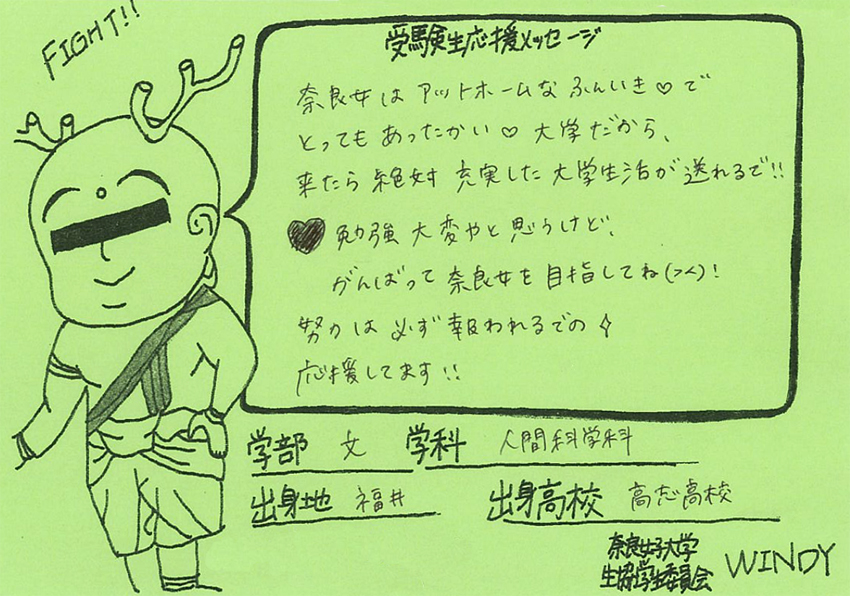 FIGHT!!
受験生応援メッセージ
奈良女は アットホームな ふんいき♡で
とっても あったかい♡ 大学だから、
来たら 絶対 充実した 大学生活が 送れるで!!
♥ 勉強 大変やと 思うけど、
がんばって 奈良女を 目指してね(><)!
努力は 必ず 報われるでの✧
応援してます!!
学部 文 学科 人間科学科
出身地 福井 出身高校 高志高校
奈良女子大学
生協学生委員会 WINDY